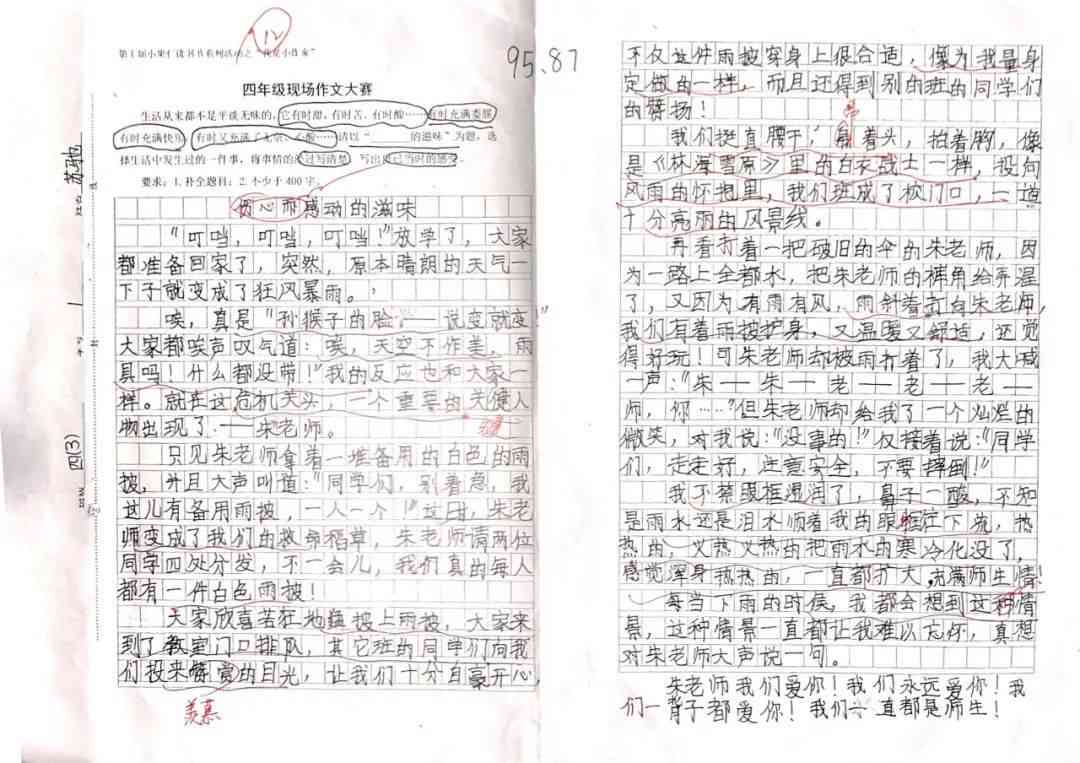 第1届小果仁读书节系列活动之“我是小作家”
12
95.87
四年级现场作文大赛
生活从来都不是平淡无味的，它有时甜，有时苦，有时酸……有时充满委屈，
有时充满快乐，有时又充满了无奈、心酸……请以“______的滋味”为题，选
择生活中发生过的一件事，将事情的经过写清楚，写出自己当时的感受。
要求：1.补全题目；2.不少于400字。
四(3)
1
伤心而感动的滋味
“叮当，叮当，叮当！”放学了，大家
都准备回家了，突然，原本晴朗的天气一
下子就变成了狂风暴雨。
唉，真是“孙猴子的脸——说变就变！”
大家都唉声叹气道：唉，天空不作美，雨
具吗！什么都没带！”我的反应也和大家一
样。就在这危机关头，一个重要的关健人
物出现了——朱老师。
键
只见朱老师拿着一堆备用的白色的雨
披，并且大声叫道：“同学们，别着急，我
这儿有备用雨披，一人一个！”这回，朱老
师变成了我们的救命稻草，朱老师请两位
同学四处分发，不一会儿，我们真的每人
都有一件白色雨披！
大家欣喜若狂地披上雨披，大家来
到了教室门口排队，其它班的同学们向我
们投来赏的目光，让我们十分自豪开心，
羡慕
不仅这件雨披穿身上很合适，像为我量身
定做的一样，而且还得到别的班的同学们
的赞扬！
昂
我们挺直腰干，着头，拍着胸，像
是《林海雪原》里的白衣战士一样，投向
风雨的怀抱里，我们班成了校门口，一道
十分亮丽的风景线。
再看打着一把破旧的伞的朱老师，因
为一路上全都水，把朱老师的裤角给弄湿
了，又因为有雨有风，雨斜着打向朱老师，
我们有着雨披护身，又温暖又舒适，还觉
得好玩！可朱老师却被雨打着了，我大喊
一声：“朱——朱——老——老——老——
师，你……”但朱老师却给我了一个灿烂的
微笑，对我说：“没事的！”仅接着说：“同学
们，走走好，注意安全，不要摔倒！”
我不禁眼框湿润了，鼻子一酸，不知
是雨水还是泪水顺着我的眼框往下流，热
热的，火热火热的把雨水的寒冷化没了，
感觉浑身热热的，一直都扩大，充满师生情！
每当下雨的时侯，我都会想到这种情
景，这种情景一直都让我难以忘怀，真想
对朱老师大声说一句。
朱老师我们爱你！我们永远爱你！我
们一背子都爱你！我们一直都是师生！